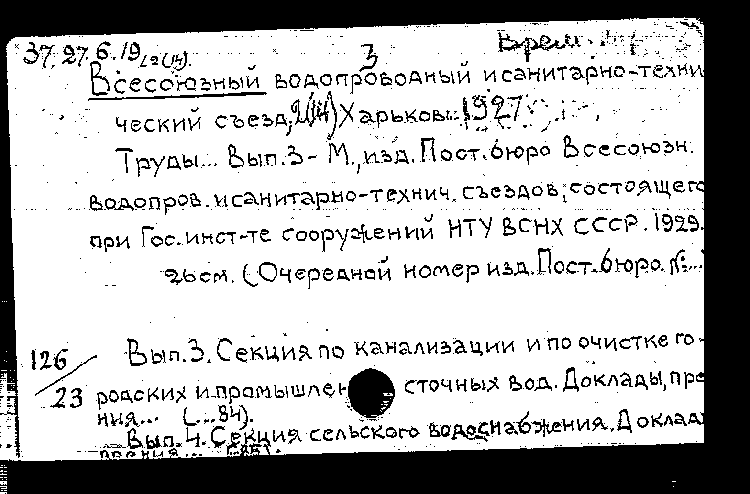 37.27.6.19 L2(14).
3 Врем.
Всесоюзный водопроводный и санитарно-техни
ческий съезд, 2(14) Харьков. 1927
Труды... Вып.3- М., изд. Пост. бюро Всесоюзн.
водопров. и санитарно-технич. съездов, состоящего
при Гос. инст-те сооружений НТУ ВСНХ СССР. 1929.
26см. (Очередной номер изд. Пост. бюро. №...
Вып. 3. Секция по канализации и по очистке го-
126/23
родских и промышлен сточных вод. Доклады, пре
ния... (...84).
Вып. 4. Секция сельского водоснабжения. Доклад
прения...